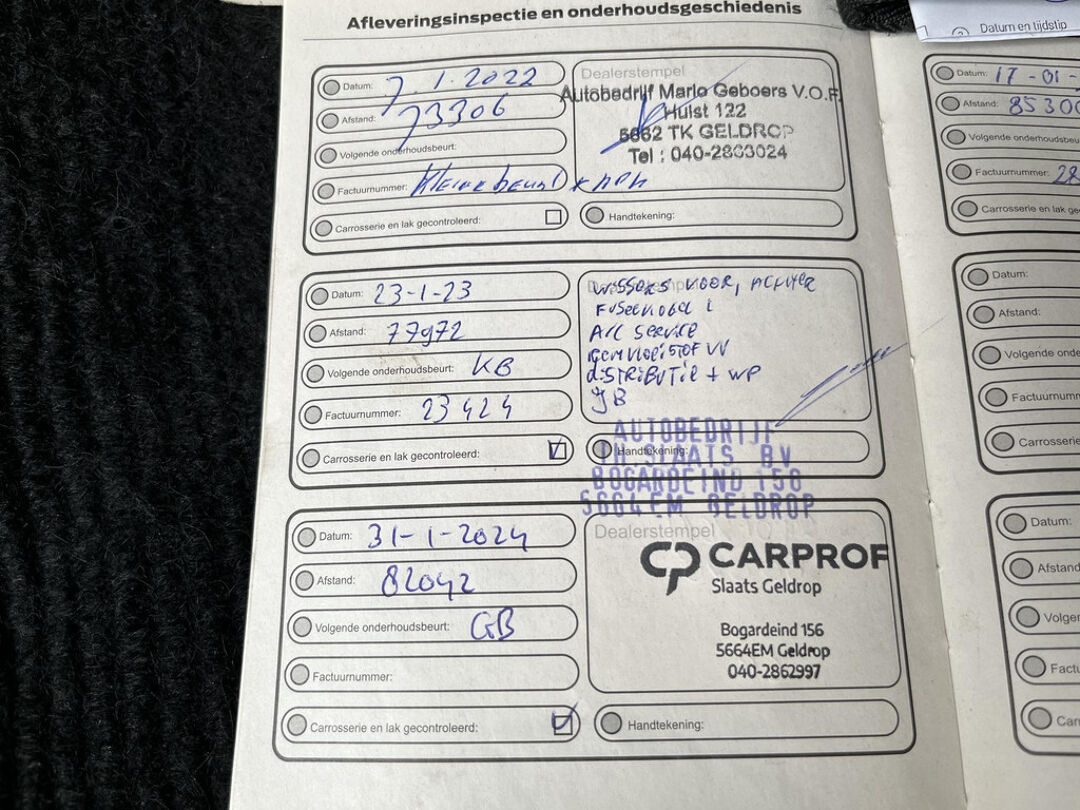 Afleveringsinspectie en onderhoudsgeschiedenis
Datum: 7.1.2022
Afstand: 73306
Volgende onderhoudsbeurt:
Factuurnummer: Kleine beurt + APK
Carrosserie en lak gecontroleerd:
Dealerstempel
Autobedrijf Mario Geboers V.O.F.
Hulst 122
5662 TK GELDROP
Tel : 040-2863024
Handtekening:
Datum: 23-1-23
Afstand: 77972
Volgende onderhoudsbeurt: KB
Factuurnummer: 23424
Carrosserie en lak gecontroleerd:
WISSERS VOOR, ACHTER
FUSEEKOGEL L
A/C SERVICE
REMVLOEISTOF VV
DISTRIBUTIE + WP
GB
Handtekening:
AUTOBEDRIJF
TH SLAATS BV
BOGARDEIND 156
5664EM GELDROP
Datum: 31-1-2024
Afstand: 82042
Volgende onderhoudsbeurt: GB
Factuurnummer:
Carrosserie en lak gecontroleerd:
Dealerstempel
CARPROF
Slaats Geldrop
Bogardeind 156
5664EM Geldrop
040-2862997
Handtekening:
Datum en tijdstip
Datum: 17-01-
Afstand: 85300
Volgende onderhoudsbeu
Factuurnummer: 28
Carrosserie en lak ge
Datum:
Afstand:
Volgende onde
Factuurnumm
Carrosserie
Datum:
Afstand
Volge
Factu
Car